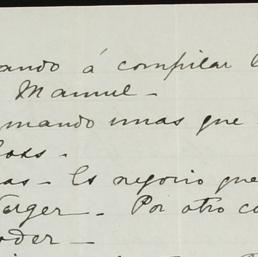 ando á compilar
Manuel -
mando unas que
as - Es negocio que
Por otro co
oder -